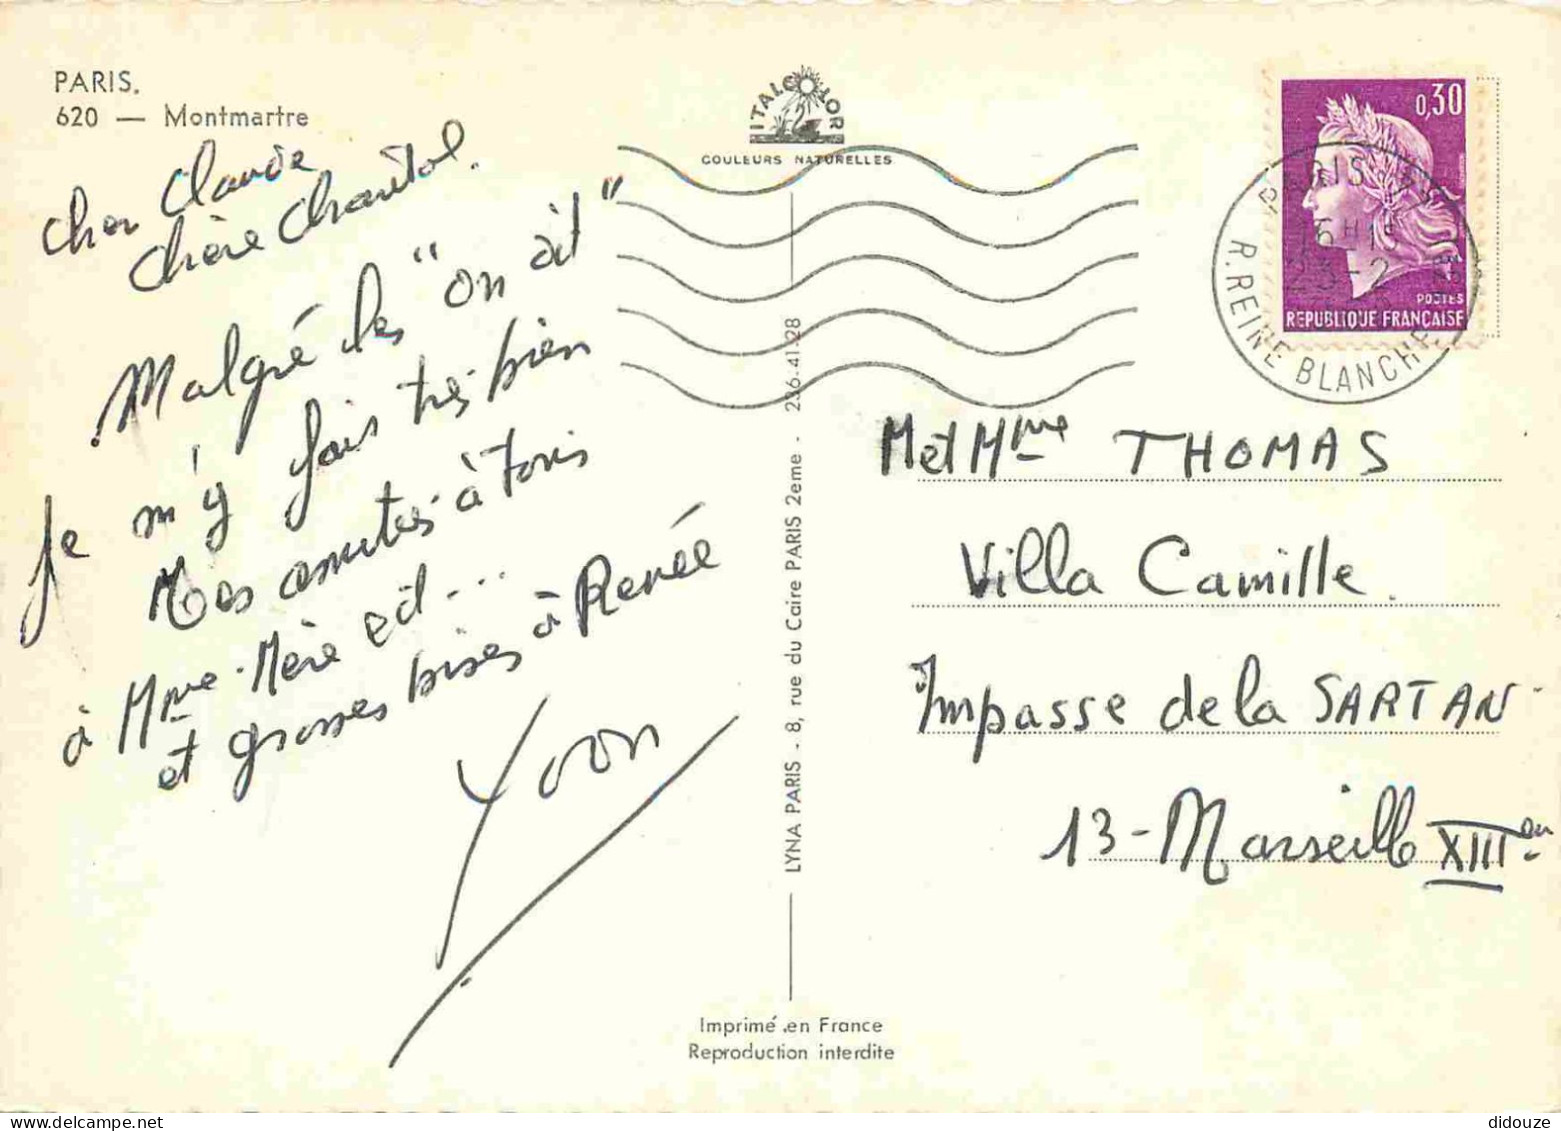 PARIS.
620 — Montmartre
Cher Claude
Chère Chantal.
Malgré les "on dit"
Je m'y fais très bien
Mes amitiés à tous
à Mme Mère et...
et grosses bises à Renée
Yvon
ITALCOLOR
COULEURS NATURELLES
LYNA PARIS - 8, rue du Caire PARIS 2eme - 236-41-28
Imprimé en France
Reproduction interdite
0,30
POSTES
REPUBLIQUE FRANÇAISE
PARIS
16H15
23-2
R. REINE BLANCHE
M et Mme THOMAS
Villa Camille.
Impasse de la SARTAN
13-Marseille XIIIen
didouze